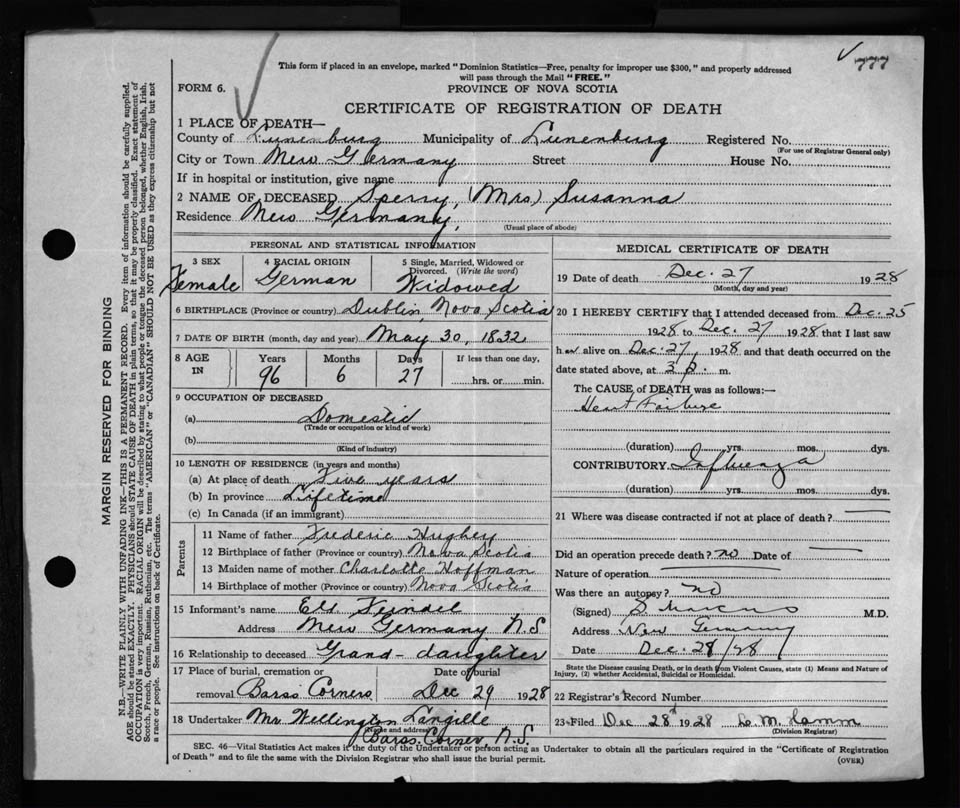 777
This form if placed in an envelope, marked "Dominion Statistics—Free, penalty for improper use $300," and properly addressed
will pass through the Mail "FREE."
FORM 6.
PROVINCE OF NOVA SCOTIA
CERTIFICATE OF REGISTRATION OF DEATH
1 PLACE OF DEATH—
County of Lunenburg Municipality of Lunenburg Registered No.
(For use of Registrar General only)
City or Town New Germany Street House No.
If in hospital or institution, give name
2 NAME OF DECEASED Sperry, (Mrs) Susanna
Residence New Germany,
(Usual place of abode)
PERSONAL AND STATISTICAL INFORMATION
3 SEX
Female
4 RACIAL ORIGIN
German
5 Single, Married, Widowed or
Divorced. (Write the word)
Widowed
6 BIRTHPLACE (Province or country) Dublin, Nova Scotia
7 DATE OF BIRTH (month, day and year) May 30, 1832
8 AGE
IN
Years Months Days If less than one day,
96 6 27 hrs. or min.
9 OCCUPATION OF DECEASED
(a) Domestic
(Trade or occupation or kind of work)
(b)
(Kind of industry)
10 LENGTH OF RESIDENCE (in years and months)
(a) At place of death Five years
(b) In province Lifetime
(c) In Canada (if an immigrant)
Parents
11 Name of father Frederic Hughey
12 Birthplace of father (Province or country) Nova Scotia
13 Maiden name of mother Charlotte Hoffman
14 Birthplace of mother (Province or country) Nova Scotia
15 Informant's name
Address New Germany N.S
16 Relationship to deceased Grand-daughter
17 Place of burial, cremation or
removal Barss Corners
Date of burial
Dec 29 1928
18 Undertaker Mr Wellington Langille
(Name and address)
Barss Corner N.S.
MEDICAL CERTIFICATE OF DEATH
19 Date of death Dec. 27 1928
(Month, day and year)
20 I HEREBY CERTIFY that I attended deceased from Dec. 25
1928 to Dec. 27 1928 that I last saw
her alive on Dec. 27, 1928 and that death occurred on the
date stated above, at 3 p. m.
The CAUSE of DEATH was as follows:—
Heart Failure
(duration) yrs. mos. dys.
CONTRIBUTORY Influenza
(duration) yrs. mos. dys.
21 Where was disease contracted if not at place of death?
Did an operation precede death? no Date of
Nature of operation
Was there an autopsy? no
(Signed) S. Marcus M.D.
Address New Germany
Date Dec. 28/28
State the Disease causing Death, or in death from Violent Causes, state (1) Means and Nature of
Injury, (2) whether Accidental, Suicidal or Homicidal.
22 Registrar's Record Number
23 Filed Dec 28th 1928 M. Hamm
(Division Registrar)
SEC. 46—Vital Statistics Act makes it the duty of the Undertaker or person acting as Undertaker to obtain all the particulars required in the "Certificate of Registration
of Death" and to file the same with the Division Registrar who shall issue the burial permit.
(OVER)
MARGIN RESERVED FOR BINDING
N.B.—WRITE PLAINLY WITH UNFADING INK—THIS IS A PERMANENT RECORD. Every item of information should be carefully supplied.
AGE should be stated EXACTLY. PHYSICIANS should STATE CAUSE OF DEATH in plain terms, so that it may be properly classified. Exact statement of
OCCUPATION is very important. RACIAL ORIGIN will be described by stating to what people or tongue the deceased person belonged, whether English, Irish,
Scotch, French, German, Russian, Ruthenian, etc. The terms "AMERICAN" or "CANADIAN" SHOULD NOT BE USED as they express citizenship but not
a race or people. See instructions on back of Certificate.